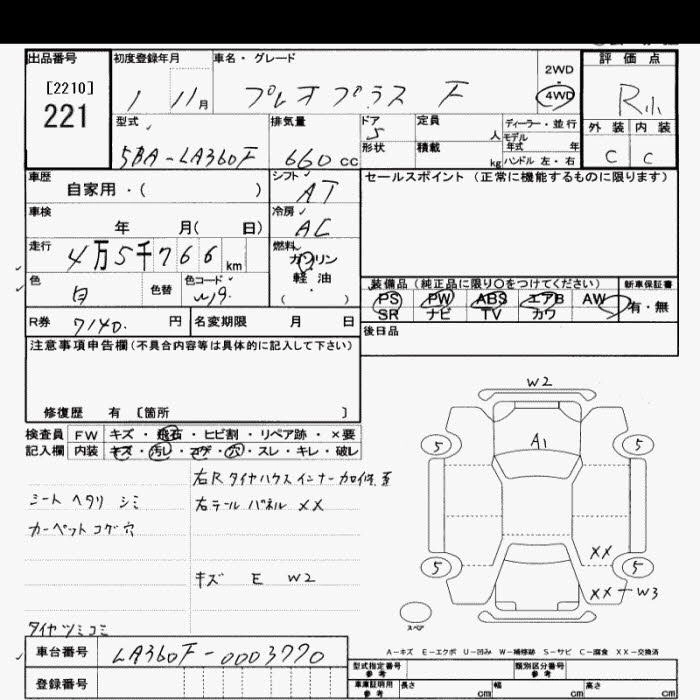 出品番号
[2210]
221
初度登録年月
1 11月
車名・グレード
プレオプラス F
2WD
4WD
評価点
R小
外装 内装
C C
型式
5BA-LA360F
排気量
660 cc
ドア
5
形状
定員 人
積載 kg
ディーラー・並行
モデル年式 年
ハンドル 左・右
車歴
自家用・( )
シフト
AT
車検
年 月( 日)
冷房
AC
走行
4万5千766 km
燃料
ガソリン
軽油
( )
色
白
色替
色コード
W19.
R券 7140. 円
名変期限 月 日
セールスポイント(正常に機能するものに限ります)
装備品(純正品に限り○をつけてください)
新車保証書
PS PW ABS エアB AW
SR ナビ TV カワ
有・無
後日品
注意事項申告欄(不具合内容等は具体的に記入して下さい)
修復歴 有〔箇所 〕
検査員記入欄
FW キズ・飛石・ヒビ割・リペア跡・×要
内装 キズ・汚レ・コゲ・穴・スレ・キレ・破レ
右Rタイヤハウスインナー加修歪
シート ヘタリ シミ
右テールパネル XX
カーペットコゲ穴
キズ E W2
タイヤツミコミ
W2
A1
5 5
XX
5 5
XX-W3
スペア
A-キズ E-エクボ U-凹み W-補修跡 S-サビ C-腐食 XX-交換済
車台番号 LA360F-0003770
登録番号
型式指定番号 参考
類別区分番号 参考
車庫証明用 参考 長さ cm 幅 cm 高さ cm